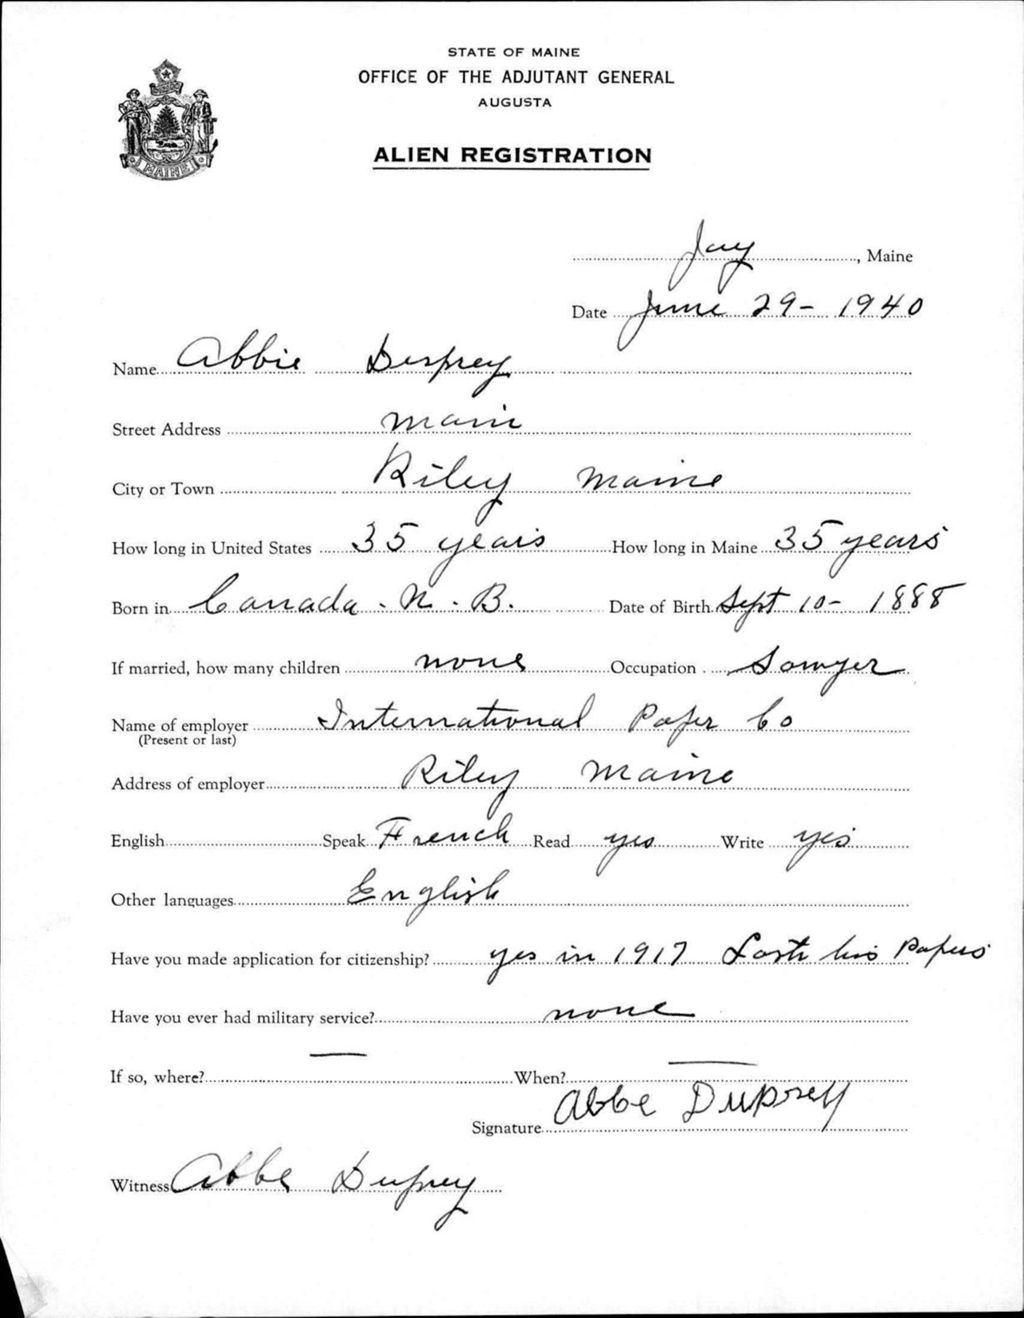 STATE OF MAINE
OFFICE OF THE ADJUTANT GENERAL
AUGUSTA
ALIEN REGISTRATION
MAINE
Jay, Maine
Date June 29 - 1940
Name Abbie Duprey
Street Address Main
City or Town Riley Maine
How long in United States 35 years How long in Maine 35 years
Born in Canada - N. B. Date of Birth Sept 10 - 1888
If married, how many children none Occupation Sawyer
Name of employer International Paper Co
(Present or last)
Address of employer Riley Maine
English Speak French Read yes Write yes
Other languages English
Have you made application for citizenship? yes in 1917 Lost his Papers
Have you ever had military service? none
If so, where? — When? —
Signature Abbe Duprey
Witness Abbe Duprey